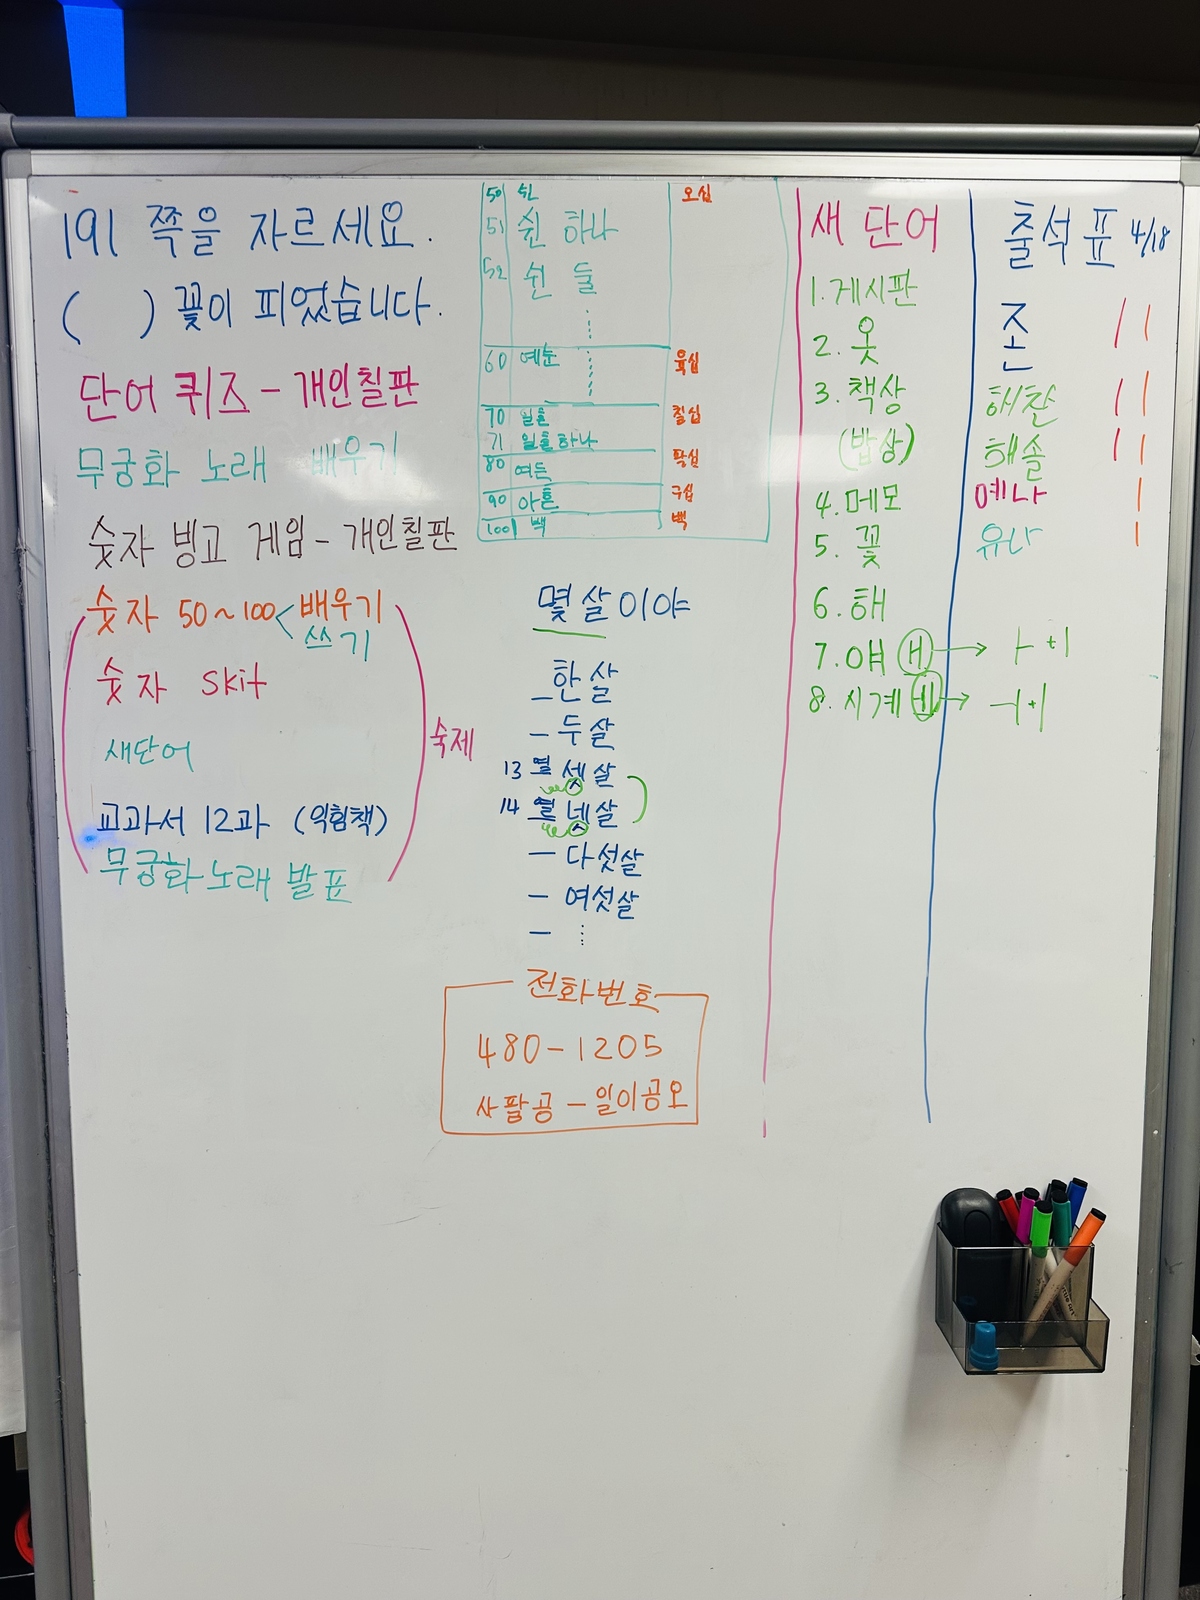 191 쪽을 자르세요.
( ) 꽃이 피었습니다.
단어 퀴즈 - 개인칠판
무궁화 노래 배우기
숫자 빙고 게임 - 개인칠판
숫자 50~100 < 배우기
쓰기
숫자 skit
새단어
교과서 12과 (익힘책)
무궁화 노래 발표
숙제
50 쉰 오십
51 쉰 하나
52 쉰 둘
60 예순 육십
70 일흔 칠십
71 일흔하나
80 여든 팔십
90 아흔 구십
100 백 백
몇 살이야
- 한 살
- 두 살
13 열 셋 살
14 열 넷 살
- 다섯살
- 여섯살
-
전화번호
480-1205
사팔공 - 일이공오
새 단어
1. 게시판
2. 옷
3. 책상
(밥상)
4. 메모
5. 꽃
6. 해
7. 얘 ㅐ → ㅏ+ㅣ
8. 시계 ㅔ → ㅓ+ㅣ
출석표 4/18
존
해찬
해솔
예나
유나